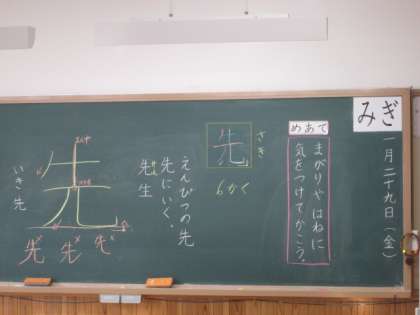 みぎ
一月二十九日(金)
めあて
まがりやはねに
気をつけてかこう。
さき
先
6かく
えんぴつの先
先にいく。
先生
先
いき先
先 先 先